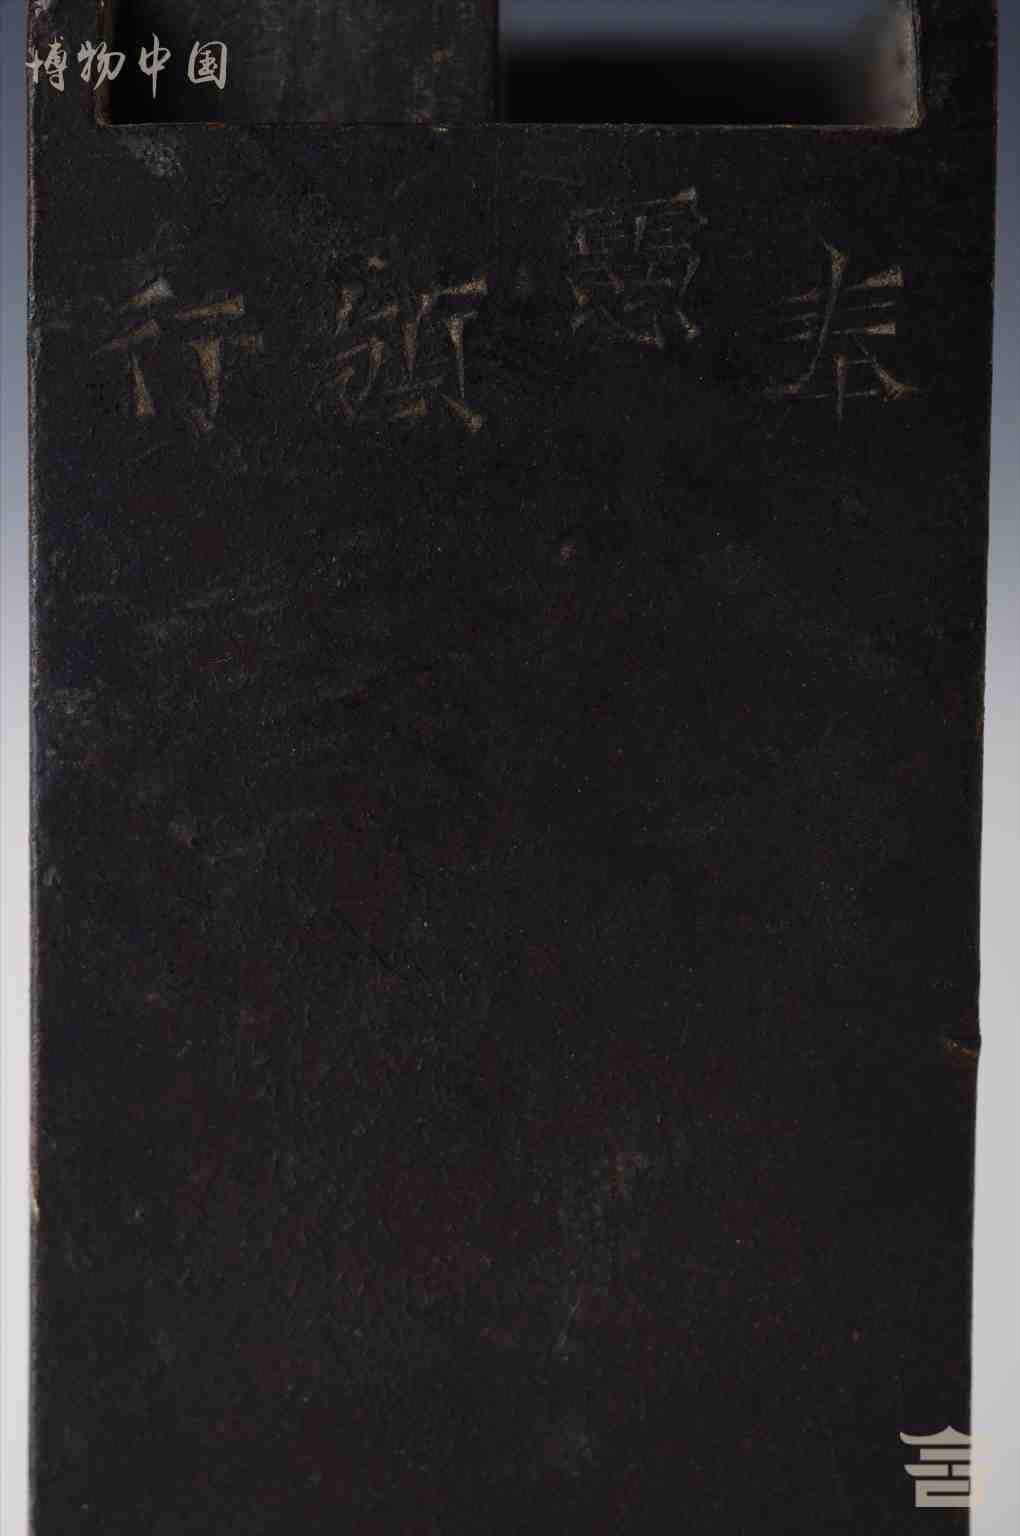 博物中国
奉憲頒行